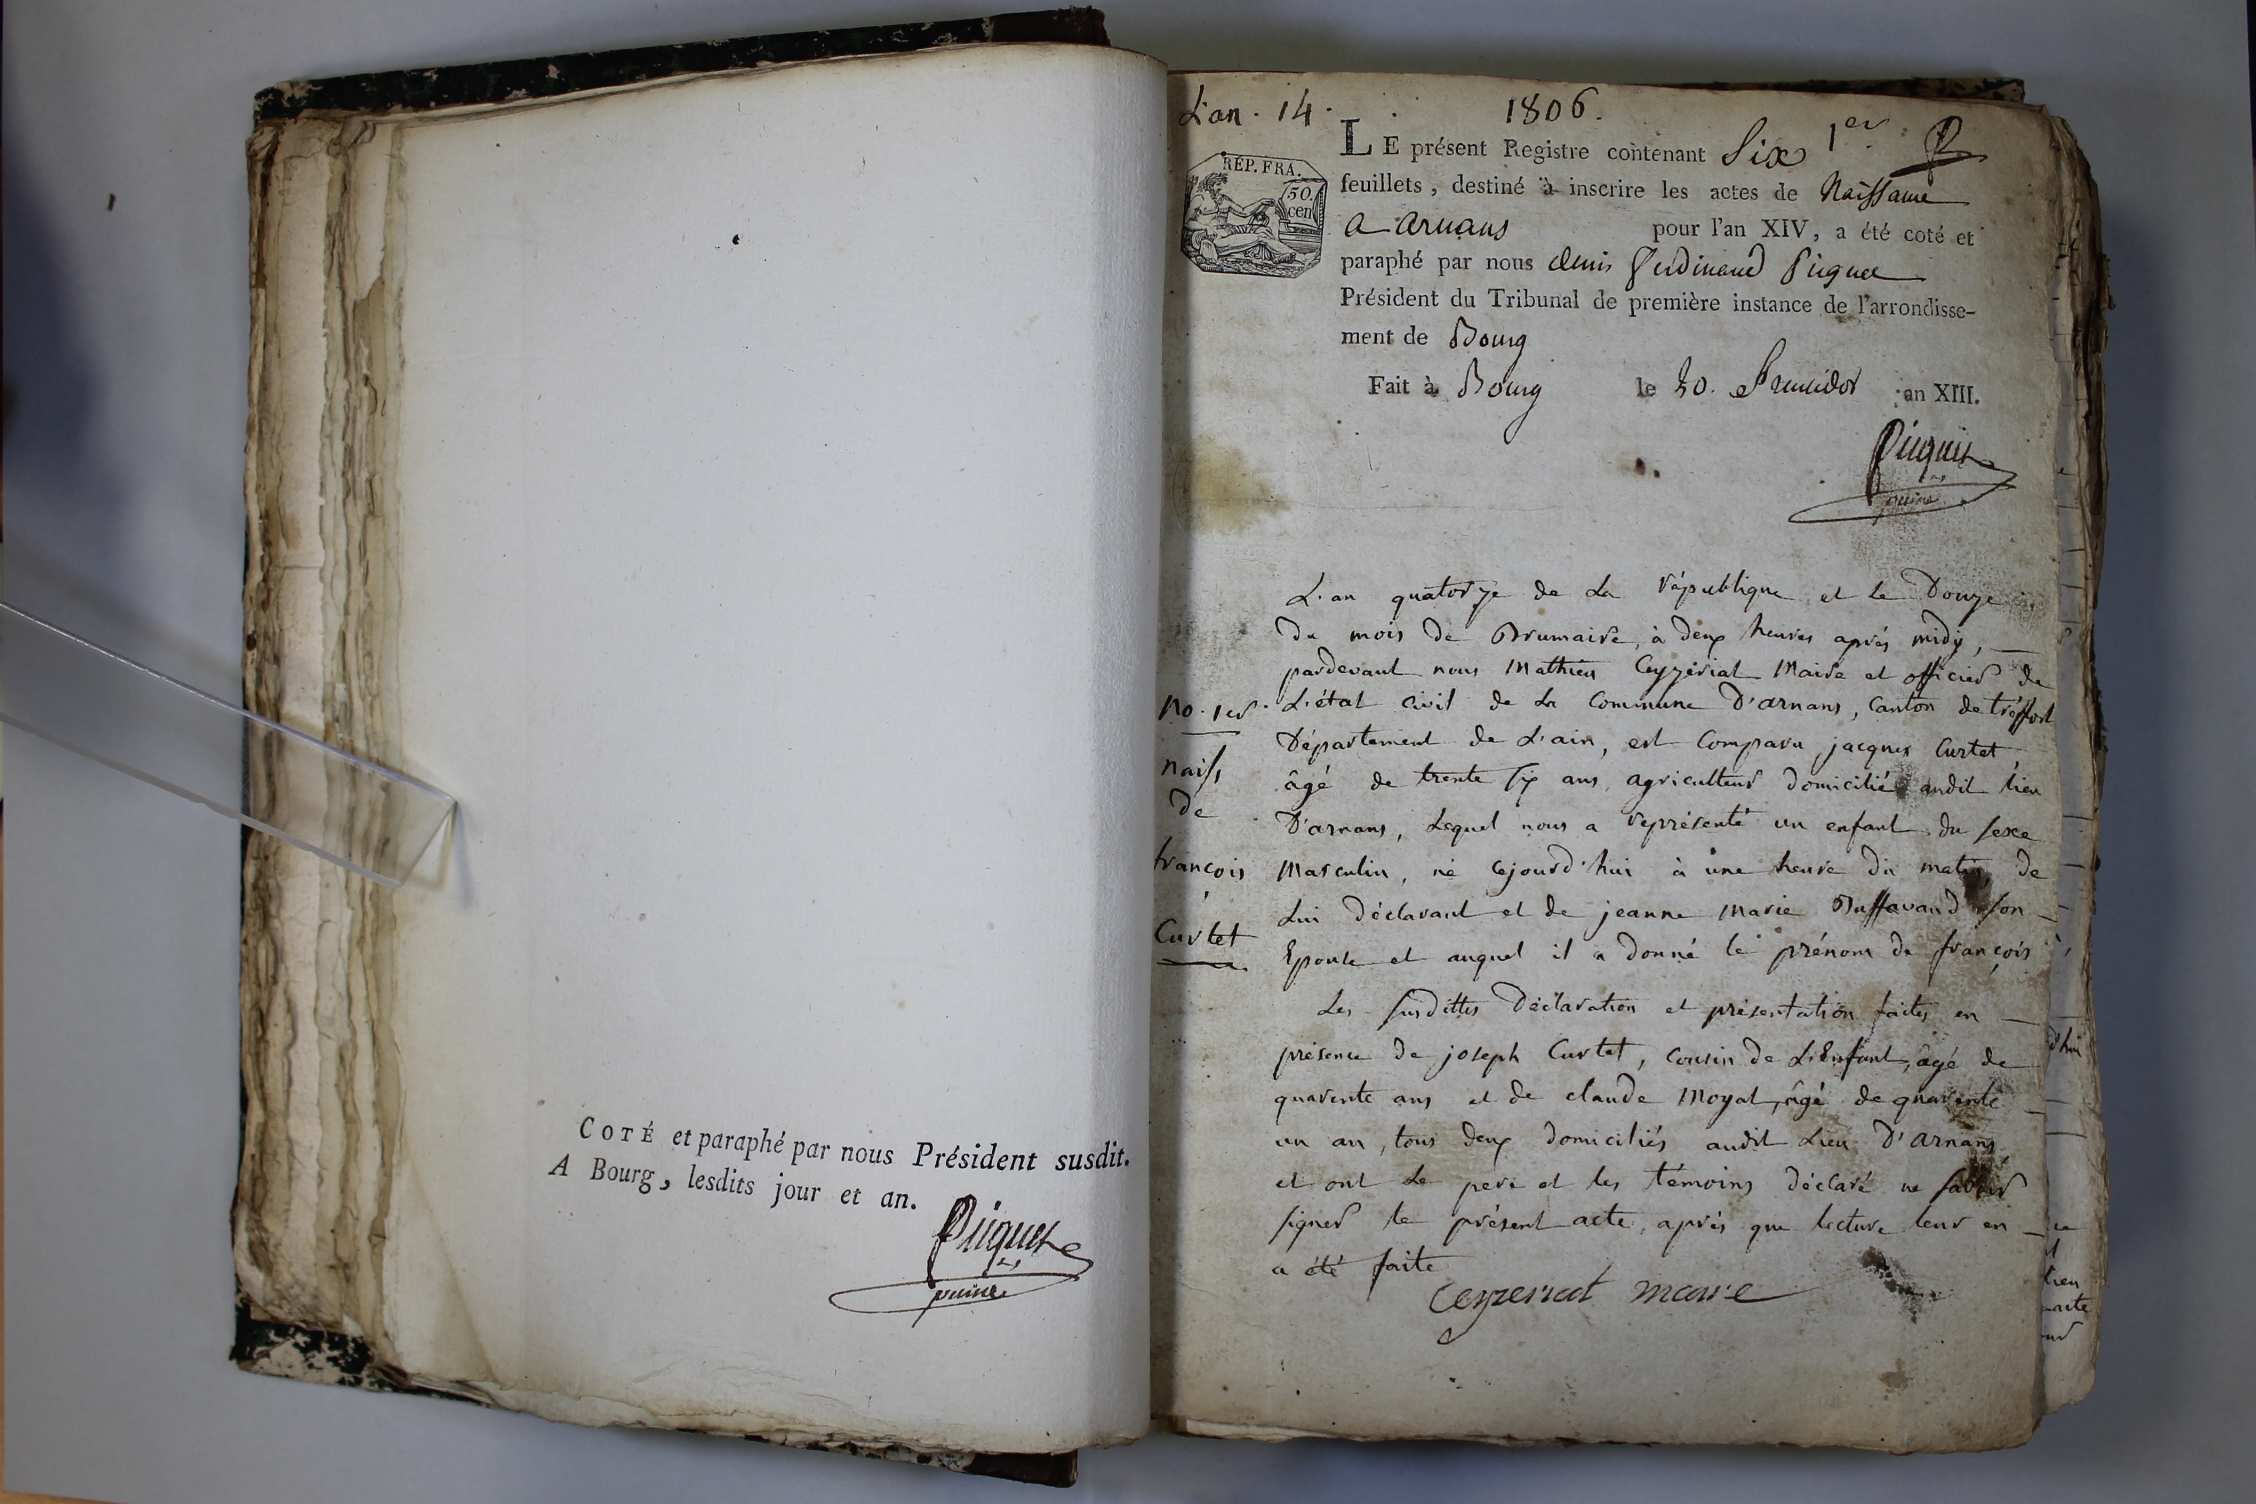 COTÉ et paraphé par nous Président susdit.
A Bourg, lesdits jour et an.
Picquet
puiné
L'an . 14 . 1806.
1er
LE présent Registre contenant Six
feuillets, destiné à inscrire les actes de Naissance
a arnans pour l'an XIV, a été coté et
paraphé par nous denis ferdinand Picquet
Président du Tribunal de première instance de l'arrondisse-
ment de Bourg
Fait à Bourg le 20. fructidor an XIII.
RÉP. FRA.
50.
cen
Picquet
puiné
L'an quatorze de La république et le Douze
du mois de Brumaire, à deux heures après midy,
pardevant nous Mathieu Ceyzériat Maire et officier de
L'état civil de La Commune D'arnans, Canton de tréffort
Département de L'ain, est Comparu jacques Curtet,
âgé de trente six ans, agriculteur domicilié audit lieu
D'arnans, Lequel nous a représenté un enfant du sexe
Masculin, né cejourd'hui à une heure du matin, de
Lui déclarant et de jeanne Marie Buffavand son
Epouse et auquel il a donné le prénom de françois
Les susdittes déclaration et présentation faites en
présence de joseph Curtet, Cousin de L'Enfant, âgé de
quarente ans et de claude Moyat, âgé de quarente
un an, tous deux domiciliés audit Lieu D'arnans,
et ont Le pere et les témoins déclaré ne savoir
signer le présent acte, après que lecture leur en
a été faite
Ceyzeriat maire
No. 1er.
naiss
de
françois
Curtet